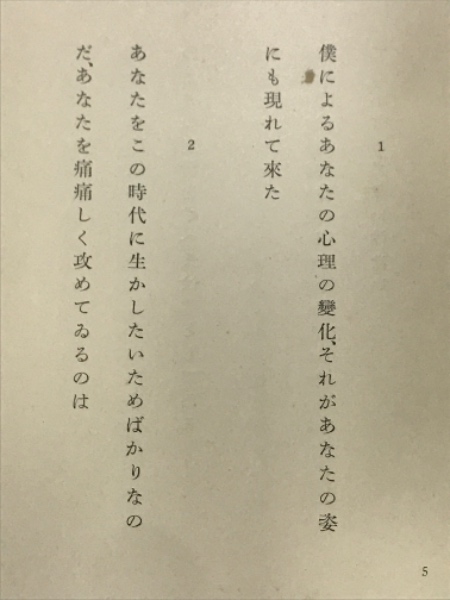 1
僕によるあなたの心理の變化、それがあなたの姿
にも現れて來た
2
あなたをこの時代に生かしたいためばかりなの
だ、あなたを痛痛しく攻めてゐるのは
5